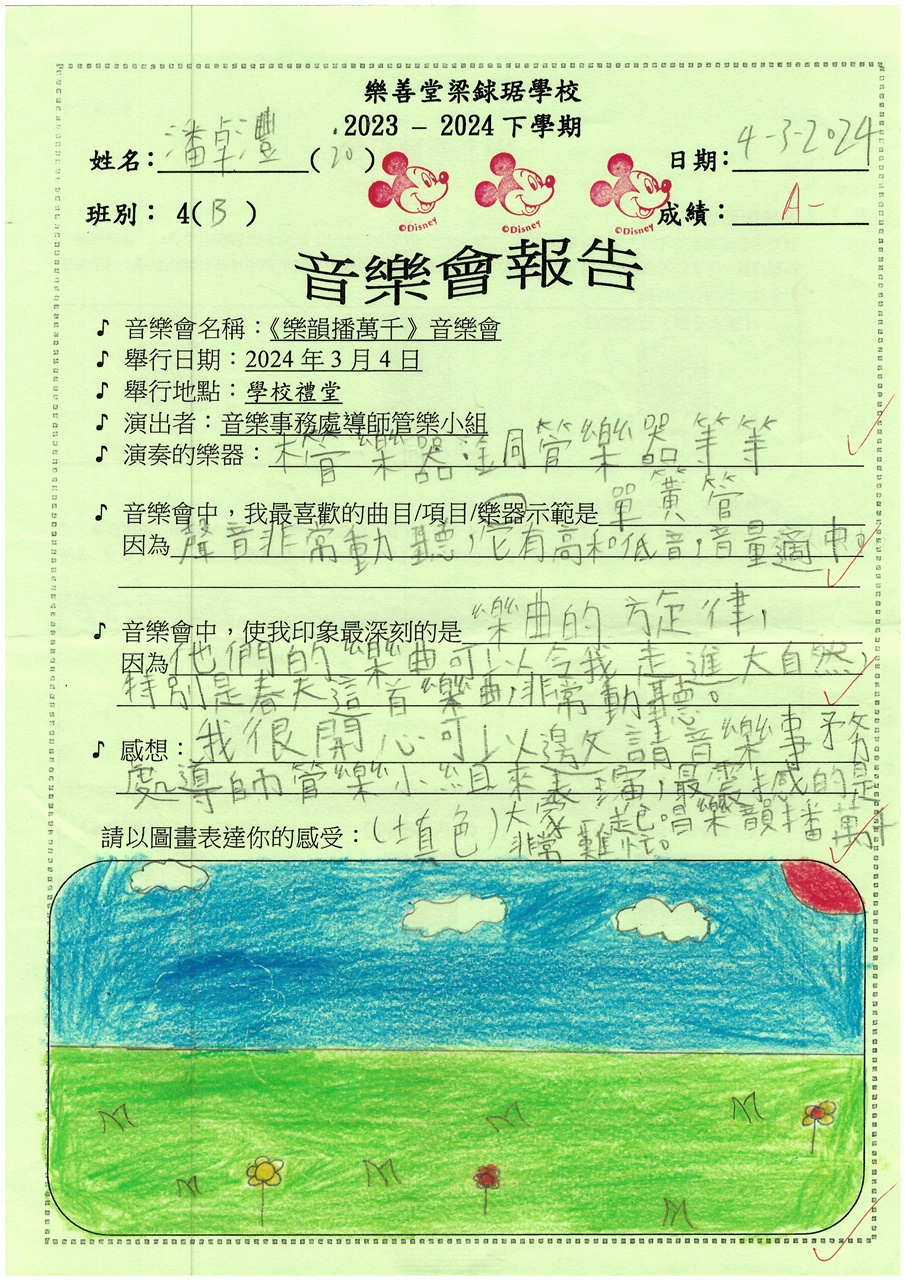 樂善堂梁銶琚學校
2023 – 2024 下學期
姓名：潘卓灃(20) 日期：4-3-2024
©Disney ©Disney ©Disney
班別： 4(B) 成績：A-
音樂會報告
♪ 音樂會名稱：《樂韻播萬千》音樂會
♪ 舉行日期：2024 年 3 月 4 日
♪ 舉行地點：學校禮堂
♪ 演出者：音樂事務處導師管樂小組
♪ 演奏的樂器：木管樂器、銅管樂器等等
♪ 音樂會中，我最喜歡的曲目/項目/樂器示範是單簧管
因為聲音非常動聽，它有高和低音，音量適中。
♪ 音樂會中，使我印象最深刻的是樂曲的旋律，
因為他們的樂曲可以令我走進大自然，
特別是春天這首樂曲，非常動聽。
♪ 感想：我很開心可以邀請音樂事務
處導師管樂小組來表演，最震撼的是
大家一起唱樂韻播萬千
非常難忘。
請以圖畫表達你的感受：(填色)